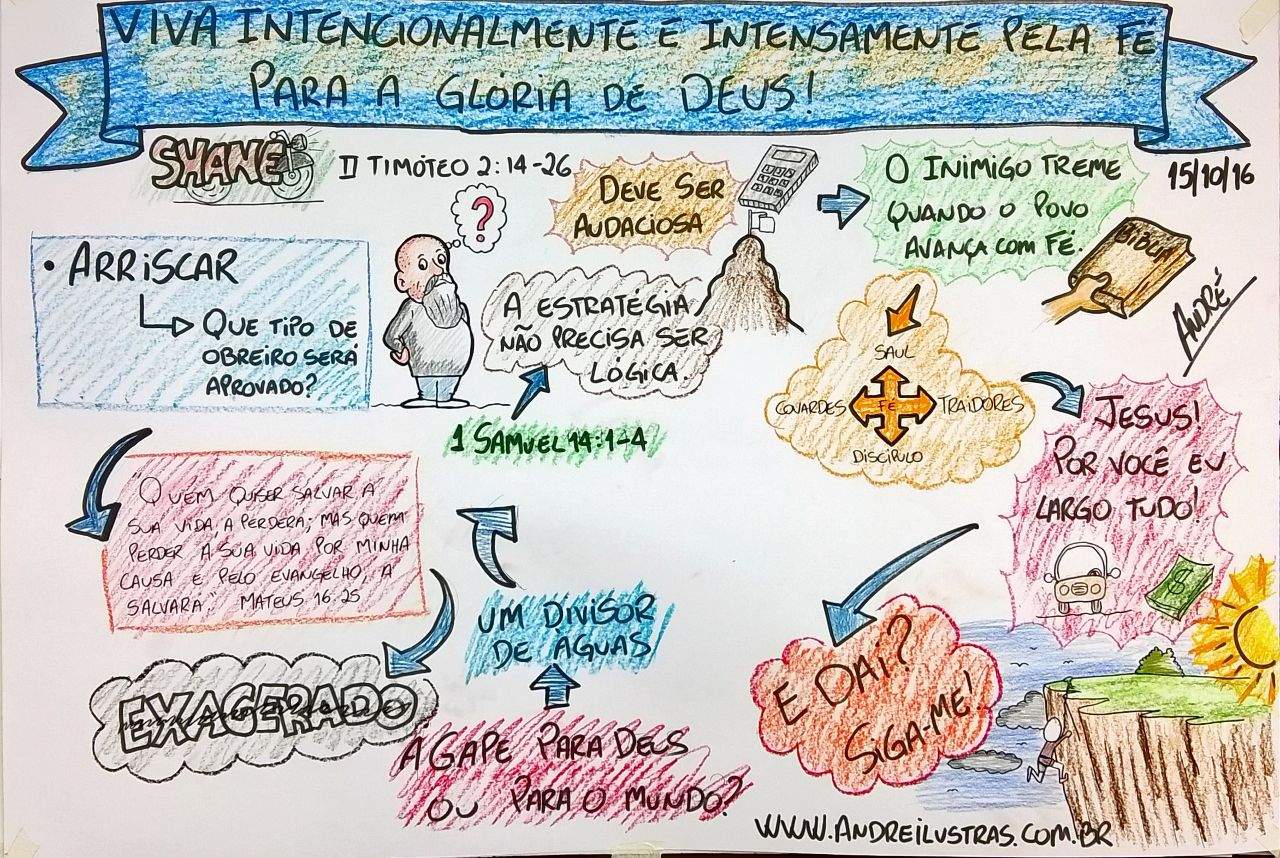 VIVA INTENCIONALMENTE E INTENSAMENTE PELA FÉ
PARA A GLÓRIA DE DEUS!
SHANE
II TIMÓTEO 2:14-26
15/10/16
• ARRISCAR
QUE TIPO DE
OBREIRO SERÁ
APROVADO?
?
DEVE SER
AUDACIOSA
A ESTRATÉGIA
NÃO PRECISA SER
LÓGICA.
1 SAMUEL 14:1-4
O INIMIGO TREME
QUANDO O POVO
AVANÇA COM FÉ.
BÍBLIA
ANDRÉ
SAUL
COVARDES FÉ TRAIDORES
DISCÍPULO
JESUS!
POR VOCÊ EU
LARGO TUDO!
$
"QUEM QUISER SALVAR A
SUA VIDA, A PERDERÁ; MAS QUEM
PERDER A SUA VIDA POR MINHA
CAUSA E PELO EVANGELHO, A
SALVARÁ." MATEUS 16:25
EXAGERADO
UM DIVISOR
DE ÁGUAS
AGAPE PARA DEUS
OU PARA O MUNDO?
E DAÍ?
SIGA-ME!
WWW.ANDREILUSTRAS.COM.BR